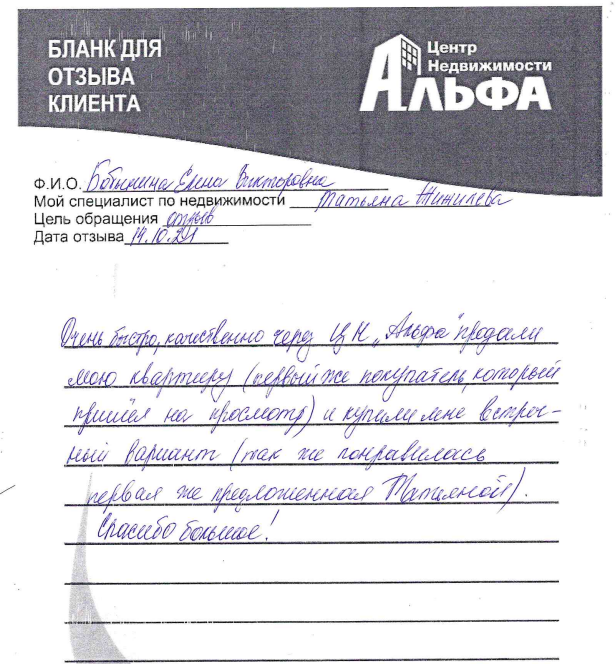 БЛАНК ДЛЯ
ОТЗЫВА
КЛИЕНТА
Центр
Недвижимости
АЛЬФА
Ф.И.О. Бобынина Елена Викторовна
Мой специалист по недвижимости Татьяна Жижилева
Цель обращения отзыв
Дата отзыва 14.10.21
Очень быстро, качественно через ЦН „Альфа" продали
мою квартиру (первый же покупатель, который
пришёл на просмотр) и купили мне встреч-
ный вариант (так же понравилась
первая же предложенная Татьяной).
Спасибо большое!